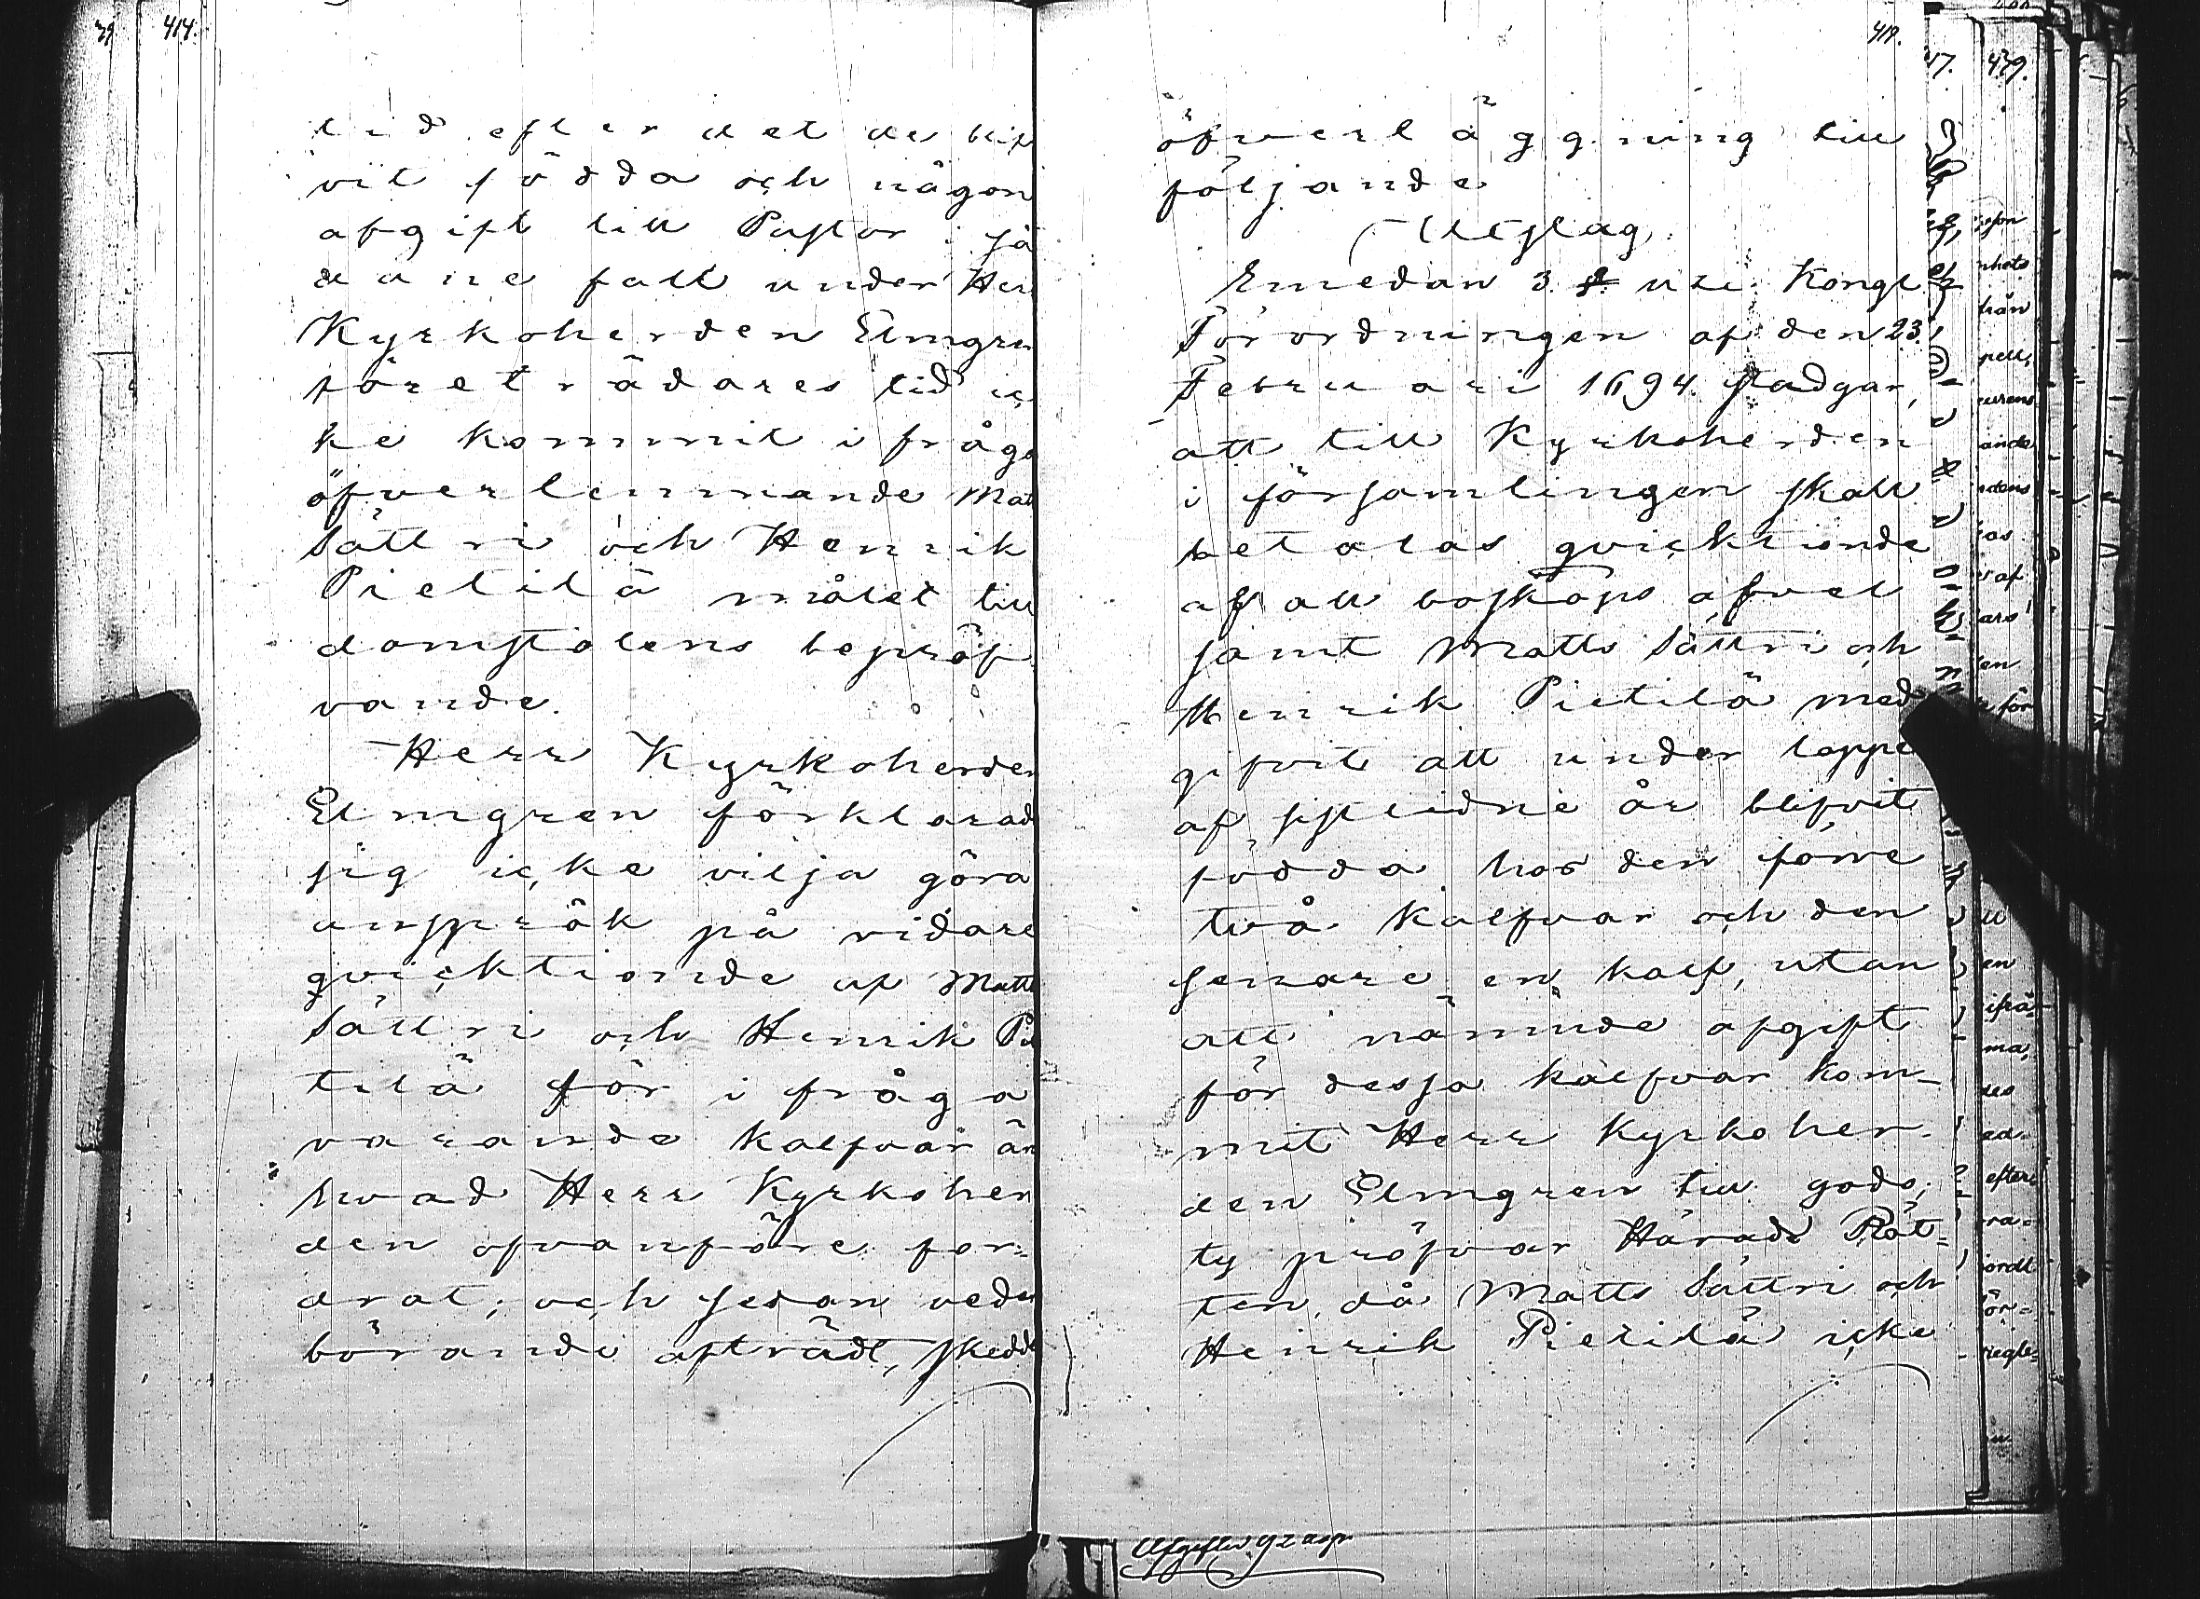 414.
tid efter det de blif
vit födda och någon
afgift till Pastor i så
dane fall under Herr
Kyrkoherden Elmgren
företrädares tid ic
ke kommit i fråga
öfverlemnande Mat
Sättri och Henrik
Pietilä målet till
domstolens bepröf
vande.
Herr Kyrkoherden
Elmgren förklarad
sig icke vilja göra
anspråk på vidare
qvicktionde af Matts
Sättri och Henrik Pie
tilä för i fråga
varande kalfvar än
hvad Herr Kyrkoher
den ofvanföre for=
drat; och sedan veder
börande afträdt, skedde
418.
öfverläggning till
följande
Utslag.
Emedan 3 § uti Kongl
Förordningen af den 23.
Februari 1694. stadgar,
att till Kyrkoherden
i församlingen skall
betalas qvicktionde
af all boskaps afvel
samt Matts Sättri och
Henrik Pietilä med
gifvit att under loppe
af sistlidne år blifvit
födda hos den förre
två kalfvar och den
senare en kalf, utan
att nämnde afgift
för dessa kalfvar kom-
mit Herr Kyrkoher-
den Elmgren till godo;
ty pröfvar Härads Rät=
ten, då Matts Sättri och
Henrik Pietilä icke